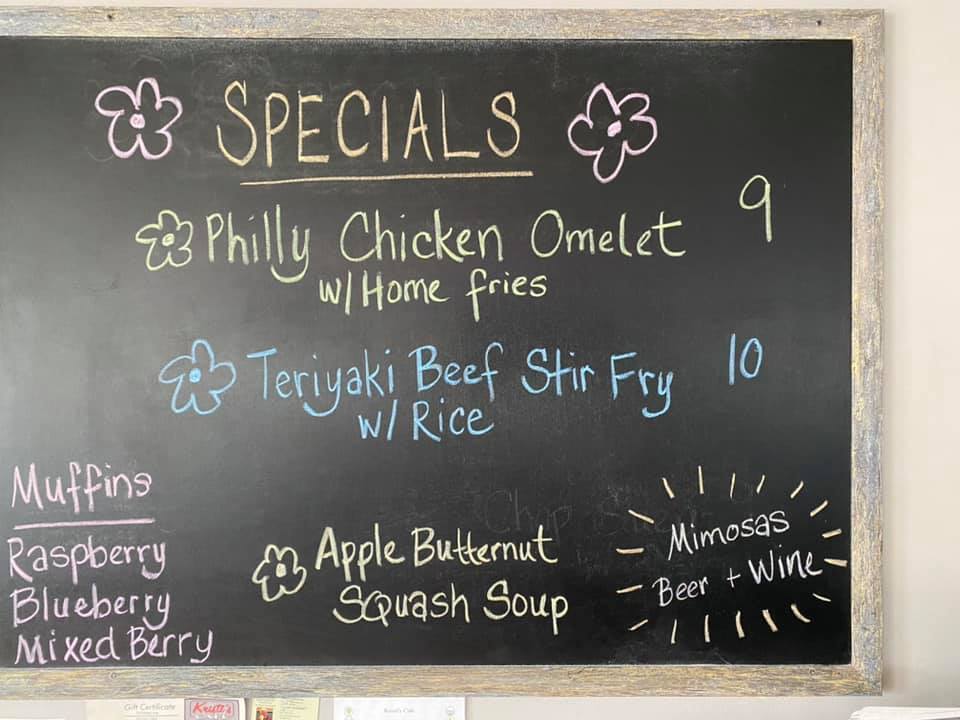 SPECIALS
Philly Chicken Omelet 9
w/Home fries
Teriyaki Beef Stir Fry 10
w/ Rice
Muffins
Raspberry
Blueberry
Mixed Berry
Apple Butternut
Squash Soup
Mimosas
Beer + Wine
Gift Certificate